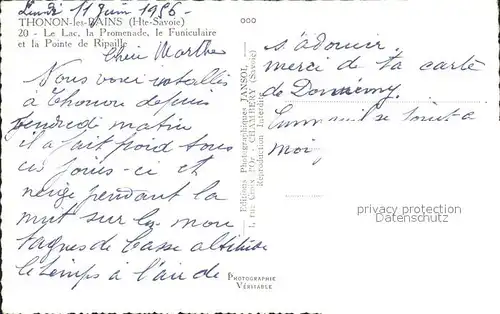 Lundi 11 Juin 1956 -
THONON-les-BAINS (Hte-Savoie)
20 - Le Lac, la Promenade, le Funiculaire
et la Pointe de Ripaille
Marthe
Nous voici installés
à Thonon depuis
vendredi matin
il a fait froid tous
ces jours-ci et
neigé pendant la
nuit sur les mon
tagnes de basse altitude
le temps à l'air de
s'adoucir.
merci de ta carte
de Domrémy.
se joint à
moi
Editions Photographiques JANSOL
1, rue Croix d'Or - CHAMBÉRY (Savoie)
Reproduction Interdite
PHOTOGRAPHIE
VÉRITABLE
privacy protection
Datenschutz